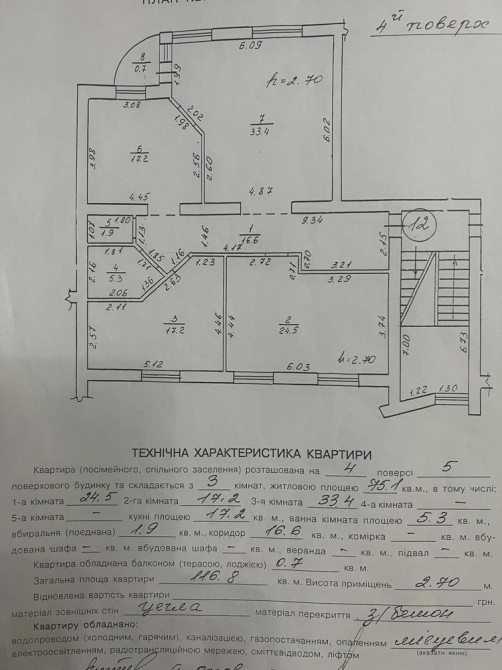 4й поверх
6.09
8
0.7
1.99
h=2.70
3.08
2.02
1.98
7
33.4
6.02
3.98
6
17.2
2.56
2.60
4.45
4.87
9.34
5
1.9
1.80
1.13
1.01
1.46
1
16.6
2.15
12
1.81
4.17
4
5.3
2.16
1.85
1.16
1.23
2.72
0.71
0.70
3.21
3.29
2.06
1.36
2.63
2.11
3
17.2
4.46
4.44
2
24.5
3.74
2.57
7.00
6.73
5.12
6.03
h=2.70
1.22
1.30
ТЕХНІЧНА ХАРАКТЕРИСТИКА КВАРТИРИ
Квартира (посімейного, спільного заселення) розташована на 4 поверсі 5
поверхового будинку та складається з 3 кімнат, житловою площею 75.1 кв.м., в тому числі:
1-а кімната 24.5 2-га кімната 17.2 3-я кімната 33.4 4-а кімната –
5-а кімната – кухні площею 17.2 кв. м., ванна кімната площею 5.3 кв. м.,
вбиральня (поєднана) 1.9 кв. м., коридор 16.6 кв. м., комірка – кв. м. вбу-
дована шафа – кв. м вбудована шафа – кв. м., веранда – кв. м., підвал – кв. м.
Квартира обладнана балконом (терасою, лоджією) 0.7 кв. м.
Загальна площа квартири 116.8 кв. м. Висота приміщень 2.70 м.
Відновлена вартість квартири грн.
матеріал зовнішніх стін цегла матеріал перекриття з/бетон
Квартиру обладнано:
водопроводом (холодним, гарячим), каналізацією, газопостачанням, опаленням місцевим
(вказати яким)
електроосвітленням, радіотрансляційною мережею, сміттєвідводом, ліфтом